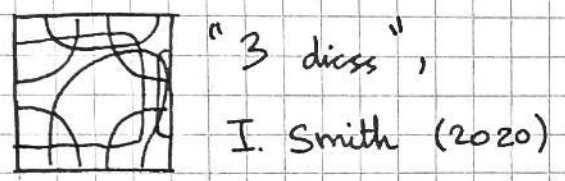 "3 dicss",
I. Smith (2020)